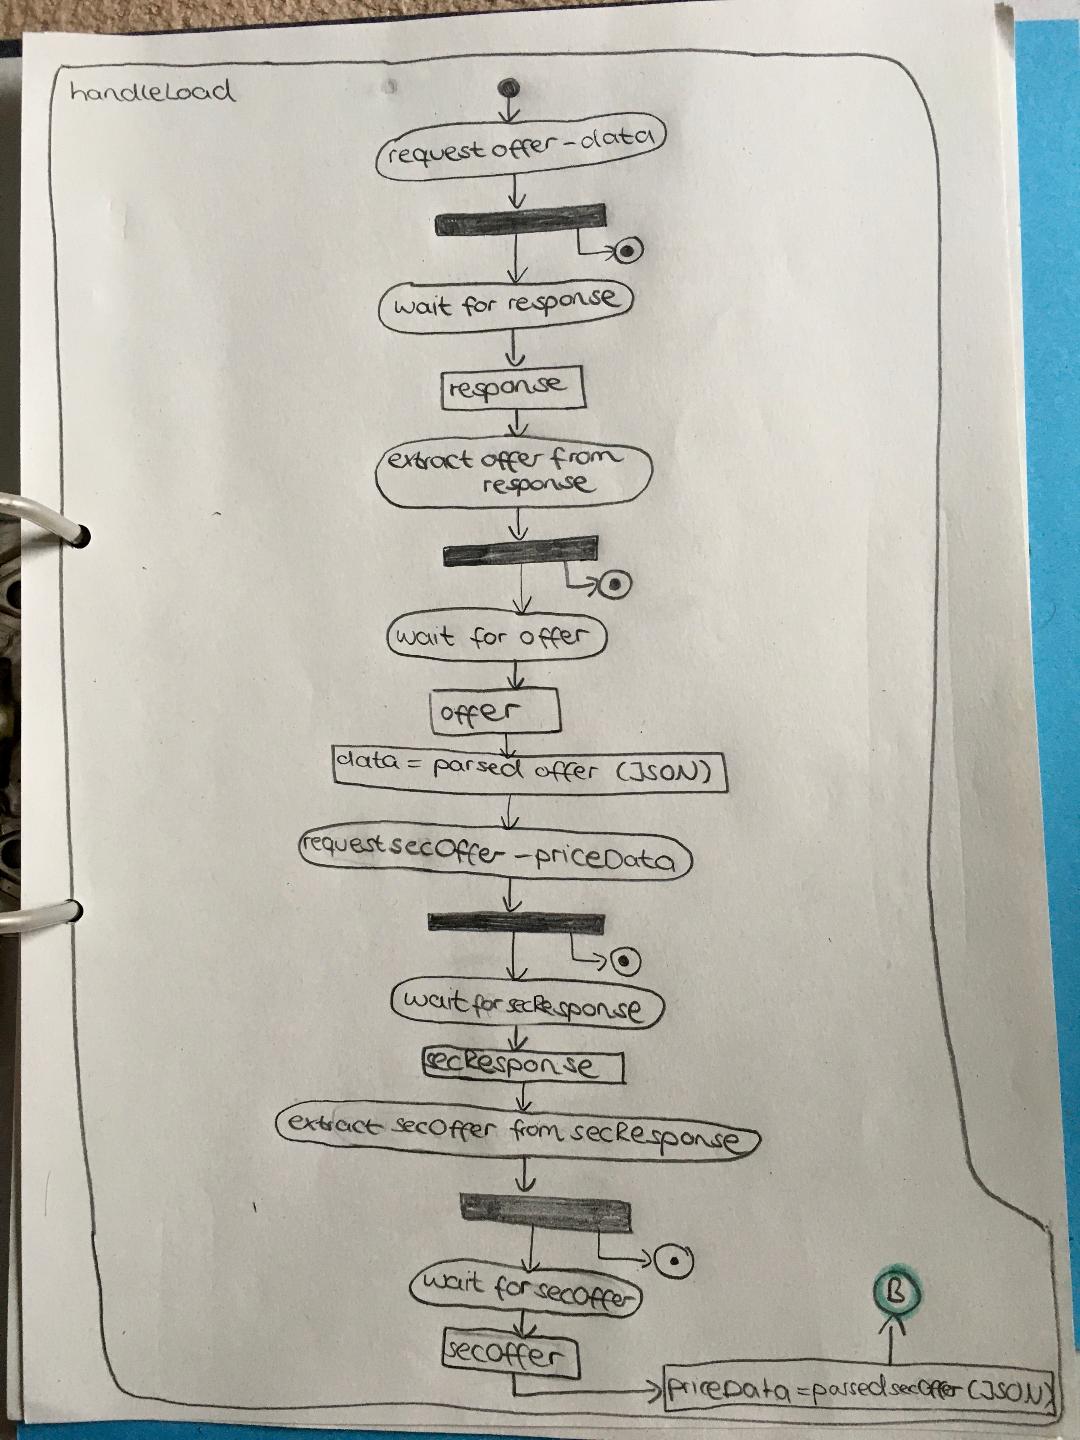 handleLoad
request offer - data
wait for response
response
extract offer from
response
wait for offer
offer
data = parsed offer (JSON)
request secOffer - priceData
wait for secResponse
secResponse
extract secOffer from secResponse
wait for secOffer
secOffer
B
priceData = parsed secOffer (JSON)